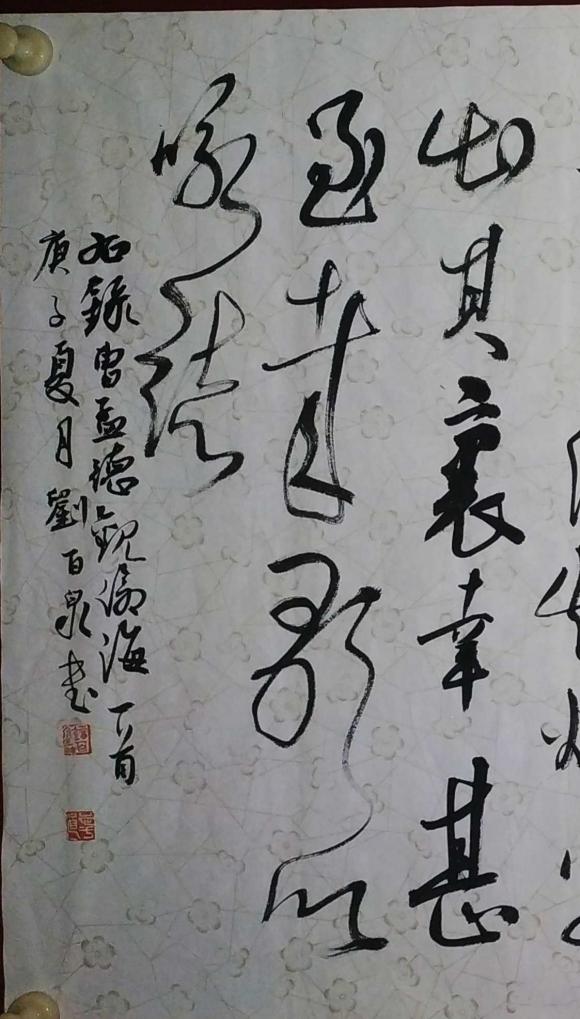 出其裏幸甚
至哉歌以
咏
右錄曹孟德觀滄海一首
庚子夏月劉百泉書